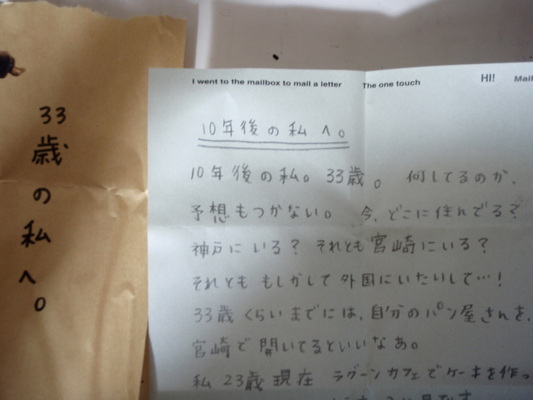 33歳の私へ。
I went to the mailbox to mail a letter The one touch HI! Mail
10年後の私へ。
10年後の私。33歳。 何してるのか、
予想もつかない。 今、どこに住んでる?
神戸にいる? それとも宮崎にいる?
それとも もしかして 外国にいたりして…!
33歳くらいまでには、自分のパン屋さんを、
宮崎で開いてるといいなあ。
私 23歳 現在 ラグーンカフェでケーキを作っ